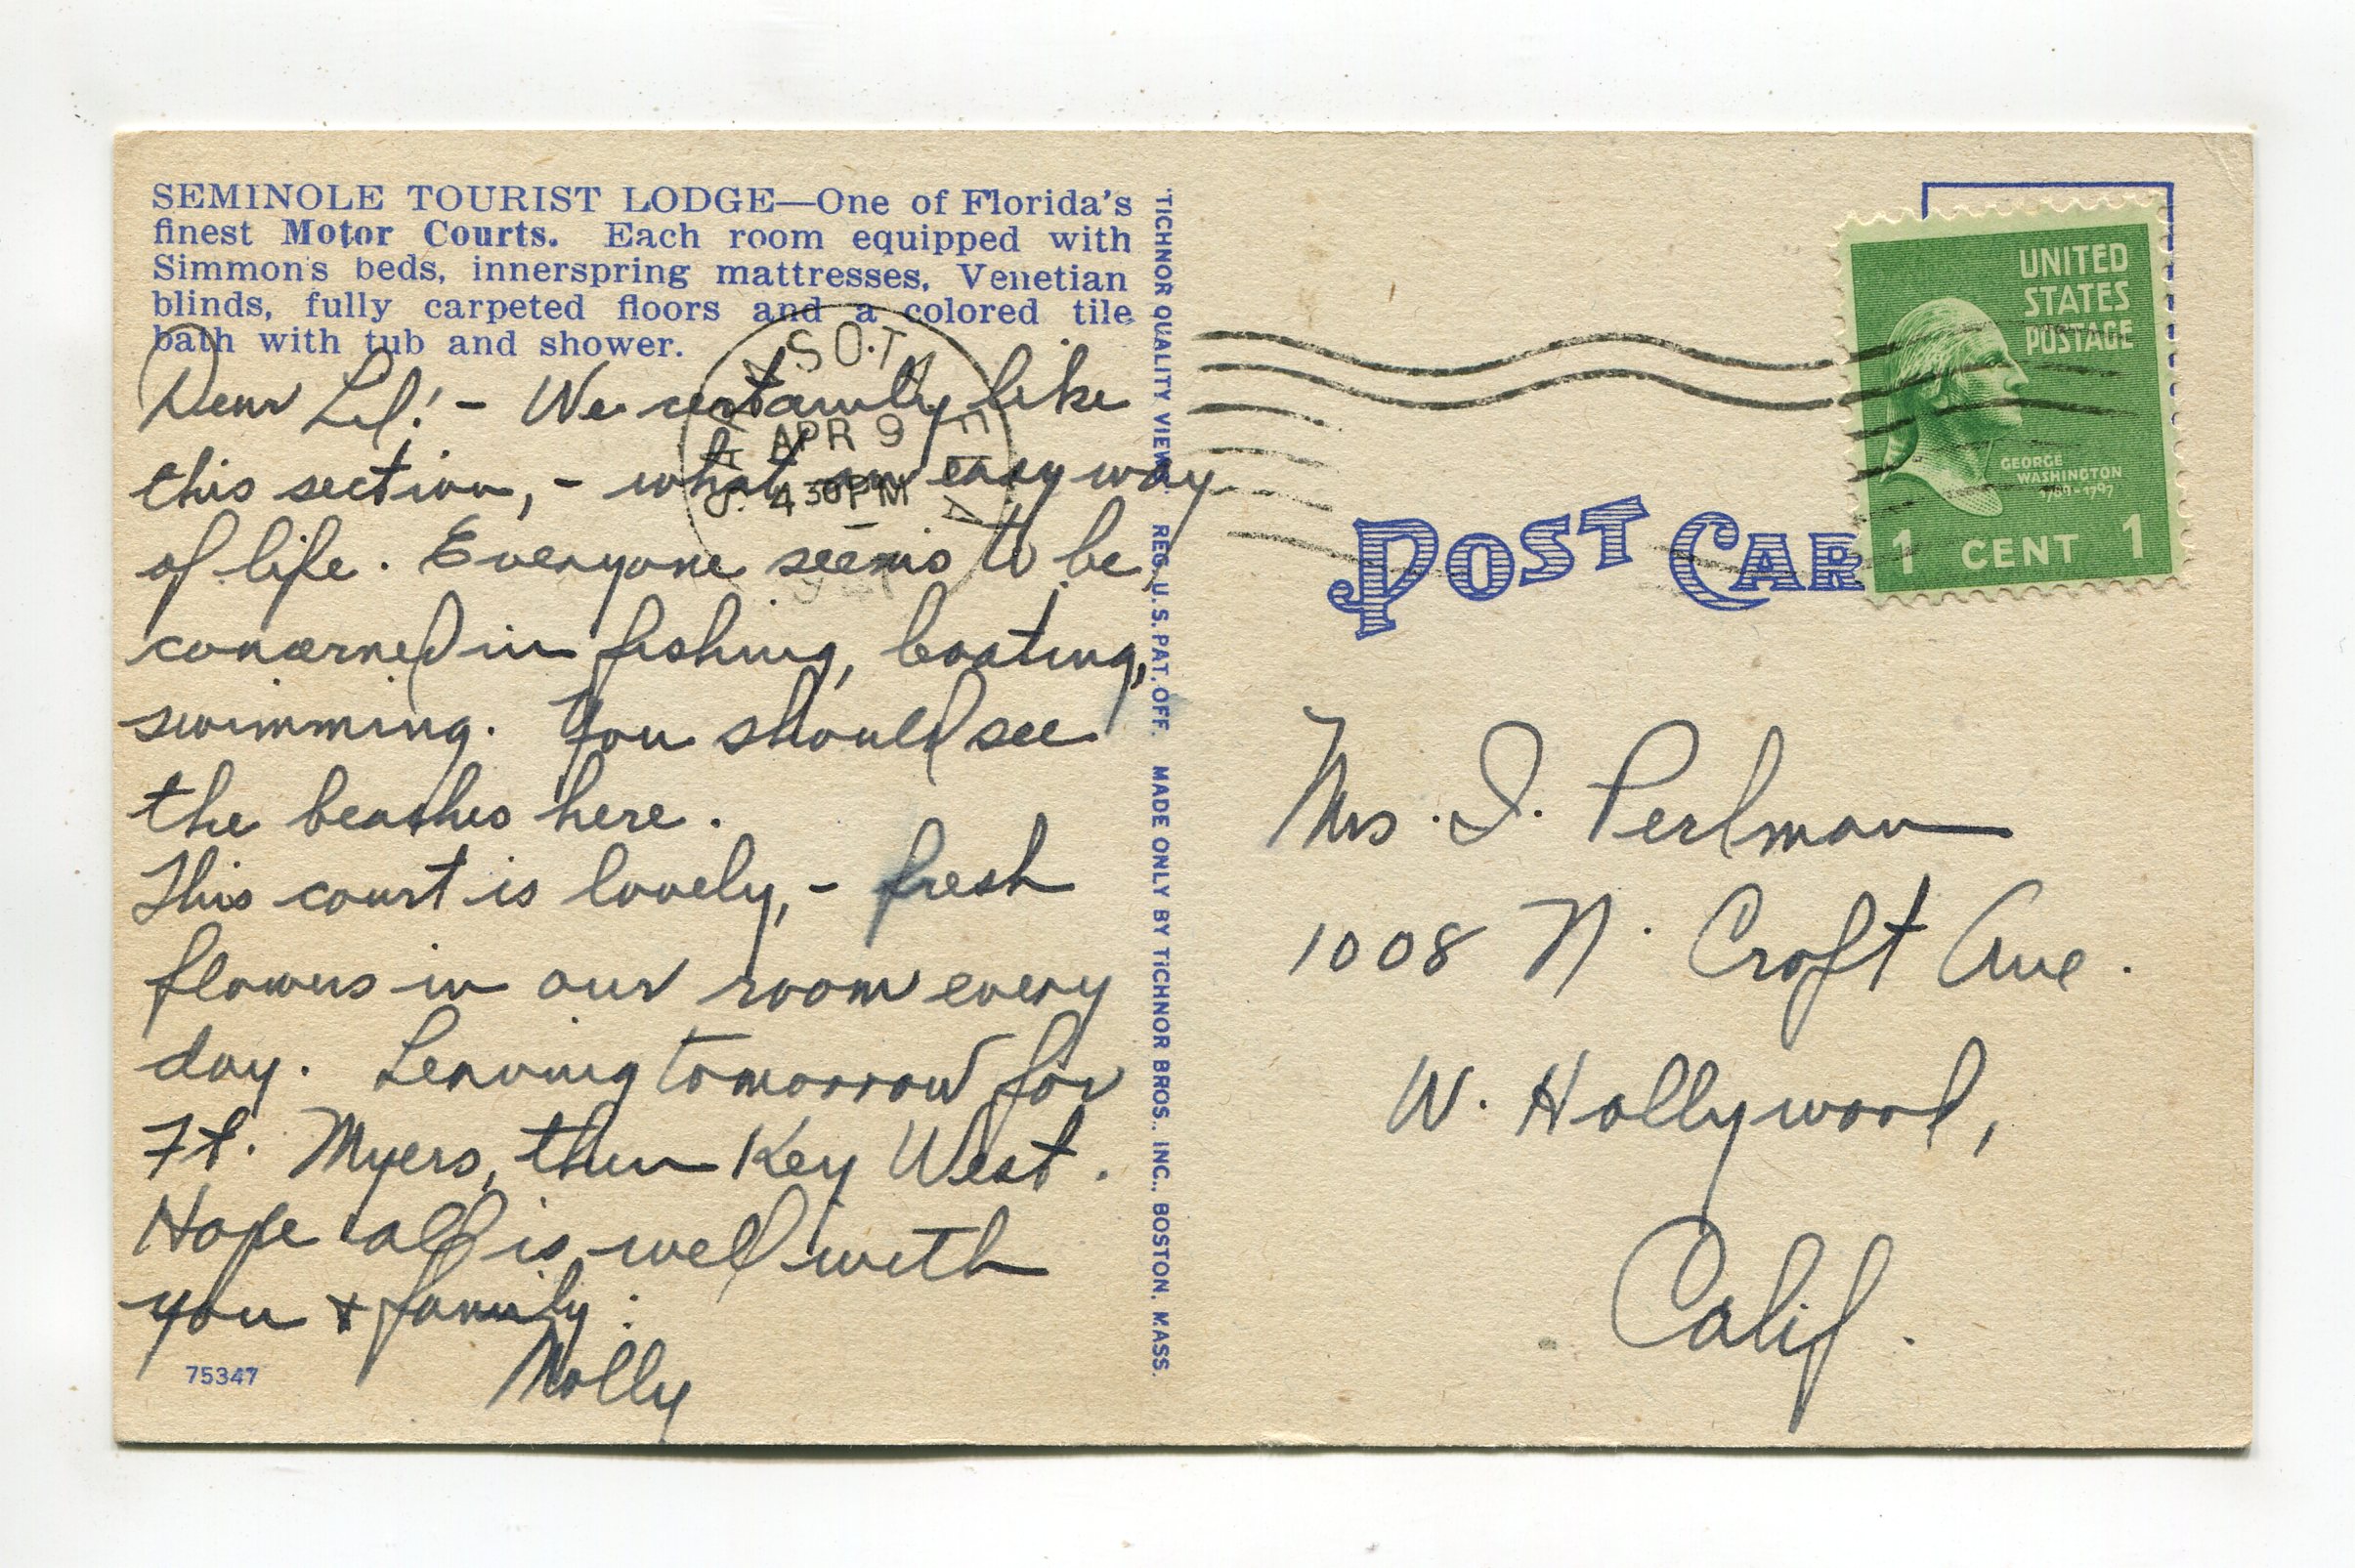 SEMINOLE TOURIST LODGE—One of Florida's
finest Motor Courts. Each room equipped with
Simmon's beds, innerspring mattresses, Venetian
blinds, fully carpeted floors and a colored tile
bath with tub and shower.
Dear Lil! - We certainly like
this section, - what an easy way
of life. Everyone seems to be
concerned in fishing, boating,
swimming. You should see
the beaches here.
This court is lovely, - fresh
flowers in our room every
day. Leaving tomorrow for
Ft. Myers, then Key West.
Hope all is well with
you + family.
Molly
75347
TICHNOR QUALITY VIEWS REG. U.S. PAT. OFF. MADE ONLY BY TICHNOR BROS., INC., BOSTON, MASS.
APR 9
4 30 PM
POST CAR
UNITED
STATES
POSTAGE
GEORGE
WASHINGTON
1789-1797
1 CENT 1
Mrs. I. Perlman
1008 N. Croft Ave.
W. Hollywood,
Calif.